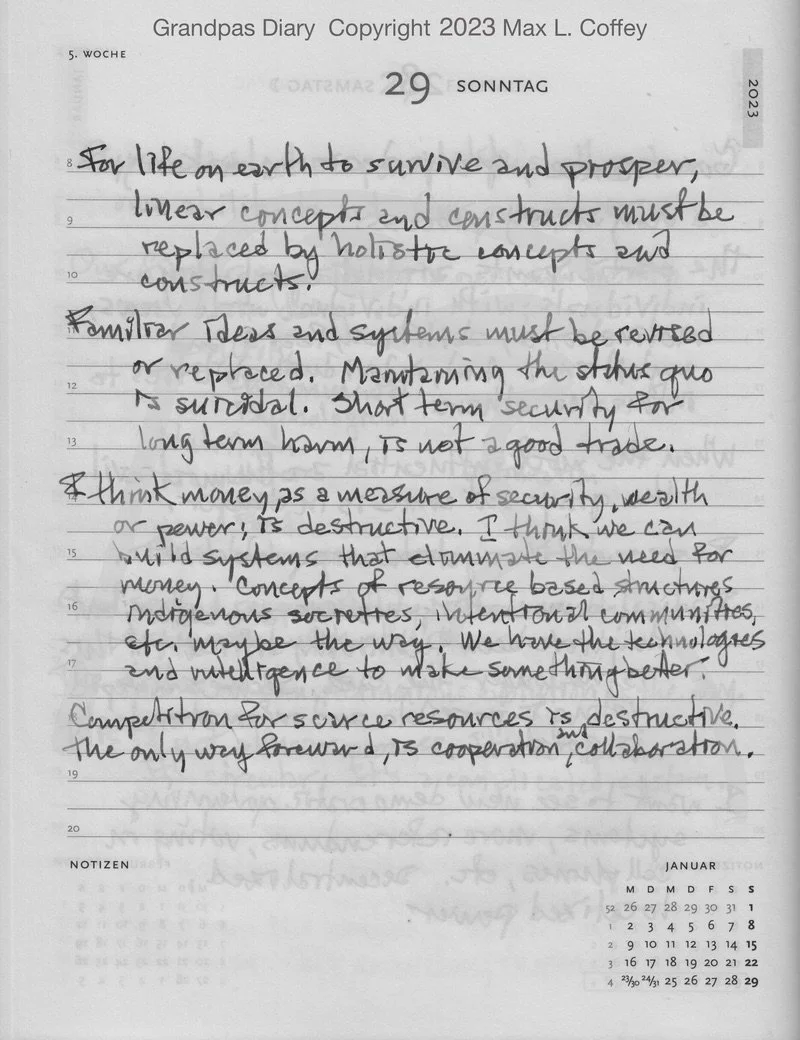 Grandpas Diary Copyright 2023 Max L. Coffey
5. WOCHE
29 SONNTAG
2023
8 For life on earth to survive and prosper,
linear concepts and constructs must be
9
replaced by holistic concepts and
10
constructs.
Familiar ideas and systems must be revised
or replaced. Maintaining the status quo
12
is suicidal. Short term security for
13
long term harm, is not a good trade.
I think money, as a measure of security, wealth
or power, is destructive. I think we can
15
build systems that eliminate the need for
money. Concepts of resource based structures
16
indigenous societies, intentional communities,
etc. maybe the way. We have the technologies
17
and intelligence to make something better.
Competition for scarce resources is destructive.
The only way foreward, is cooperation and, collaboration.
19
20
NOTIZEN
JANUAR
M D M D F S S
52 26 27 28 29 30 31 1
1 2 3 4 5 6 7 8
2 9 10 11 12 13 14 15
3 16 17 18 19 20 21 22
4 23/30 24/31 25 26 27 28 29